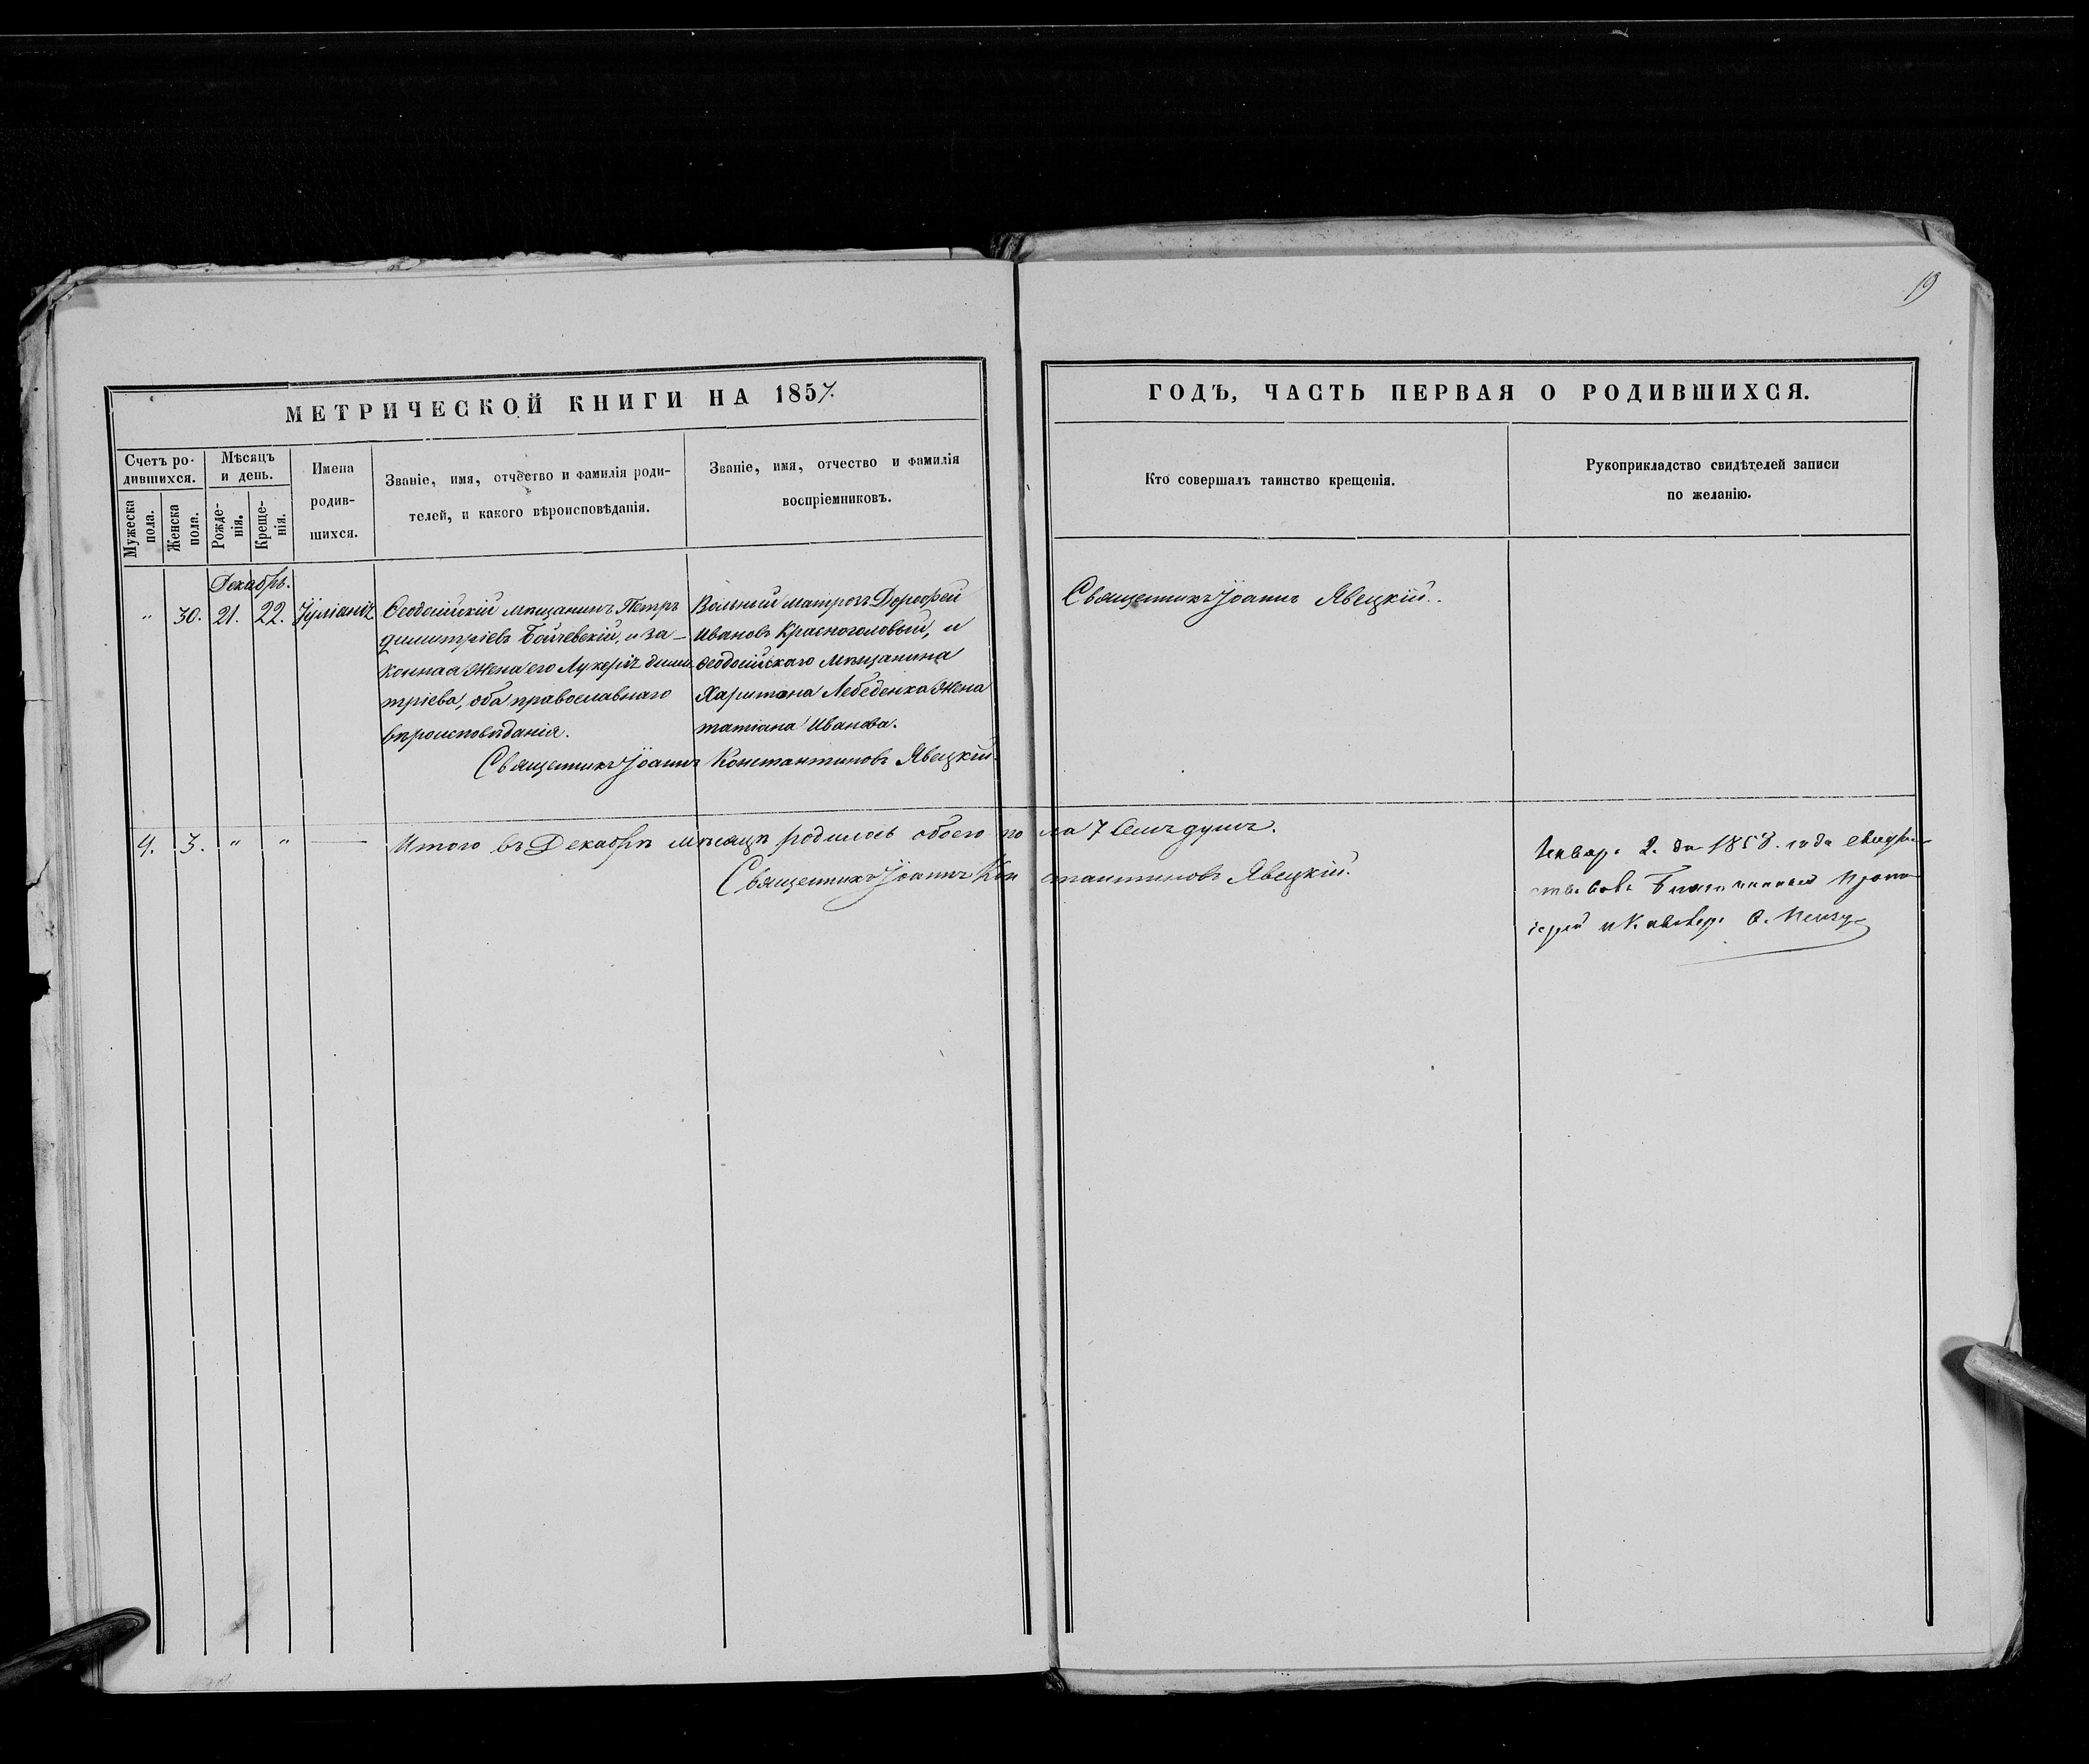 19
МЕТРИЧЕСКОЙ КНИГИ НА 1857.
ГОДЪ, ЧАСТЬ ПЕРВАЯ О РОДИВШИХСЯ.
Счетъ ро-
дившихся.
Мужеска
пола.
Женска
пола.
Мѣсяцъ
и день.
Рожде-
нія.
Креще-
нія.
Имена
родив-
шихся.
Званіе, имя, отчество и фамилія роди-
телей, и какого вѣроисповѣданія.
Званіе, имя, отчество и фамилія
воспріемниковъ.
Кто совершалъ таинство крещенія.
Рукоприкладство свидѣтелей записи
по желанію.
Декабрь.
" 30. 21. 22. Іуліанія
Ѳеодосійскій мѣщанинъ Петръ
димитріевъ Бойчевскій, и за-
конная жена его Лукерія дими
тріева, оба православнаго
вѣроисповѣданія.
Вольный матрозъ Дорофей
Ивановъ Красноголовый, и
Ѳеодосійскаго мѣщанина
Харитона Лебеденка жена
татіана Иванова.
Священникъ Іоаннъ Явецкій.
Священникъ Іоаннъ Константиновъ Явецкій.
4. 3. " " Итого въ Декабрѣ мѣсяцѣ родилось обоего пола 7 семъ душъ.
Священникъ Іоаннъ Константиновъ Явецкій.
Январ. 2. дня 1858. года свидѣтель-
ствовалъ Благочинный Прото
іерей и Кавалер.